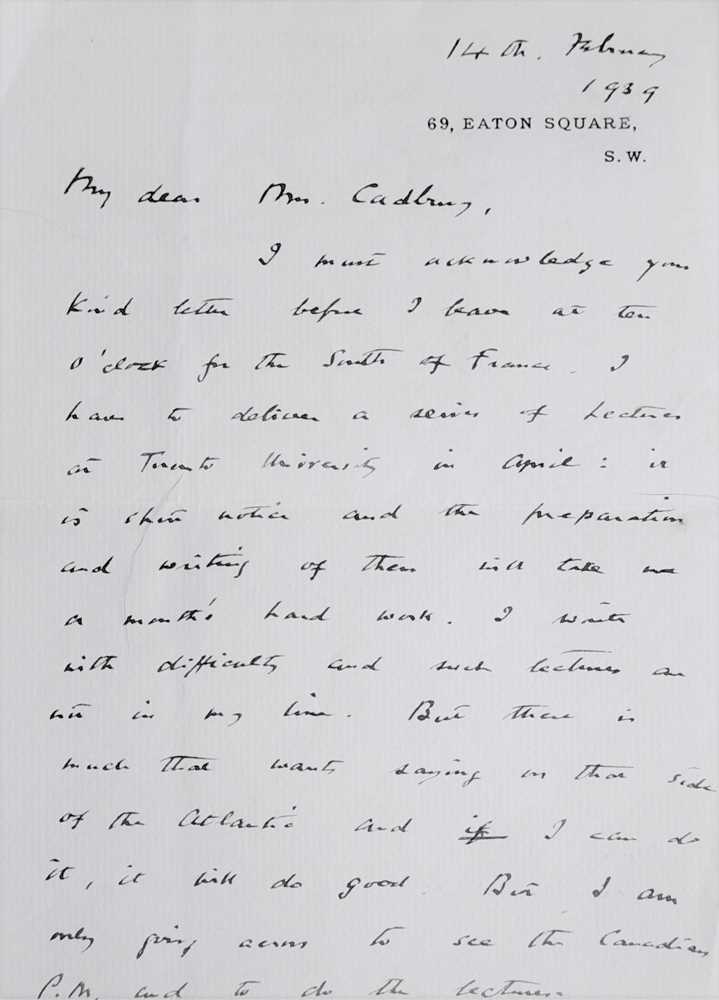 14th. February
1939
69, EATON SQUARE,
S.W.
My dear Mrs. Cadbury,
I must acknowledge your
kind letter before I leave at ten
o'clock for the South of France. I
have to deliver a series of lectures
at Toronto University in April: it
is short notice and the preparation
and writing of them will take me
a month's hard work. I write
with difficulty and such lectures are
not in my line. But there is
much that wants saying on that side
of the Atlantic and if I can do
it, it will do good. But I am
only going across to see the Canadian
P.M. and to do the lectures.